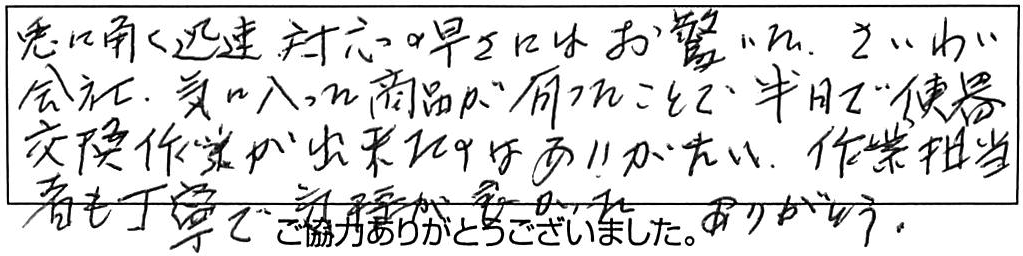 兎に角く迅速 対応の早さにはお驚いた、さいわい
会社、気に入った商品が有ったことで半日で便器
交換作業が出来たのはありがたい、作業担当
者も丁寧で 気持が良かった ありがとう。
ご協力ありがとうございました。